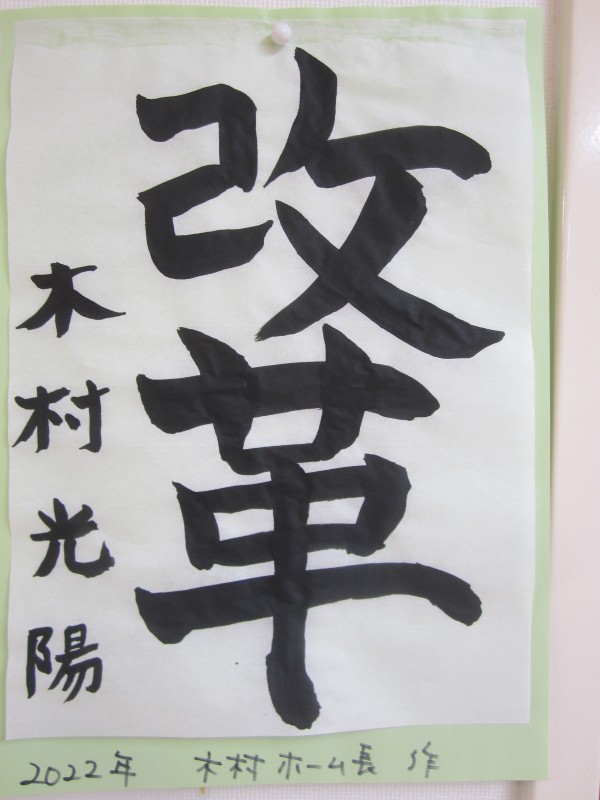 改革
木村光陽
2022年 木村ホーム長 作